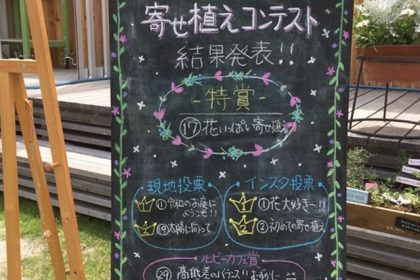 寄せ植えコンテスト
結果発表!!
-特賞-
⑰花いっぱい寄せ植え
現地投票
① 令和のお庭に
ようこそ!!
⑭太陽に向って
インスタ投票
①花大好き〜!!
②初めての寄せ植え
ルビーカフェ賞
㉙ 高低差のバランス!!